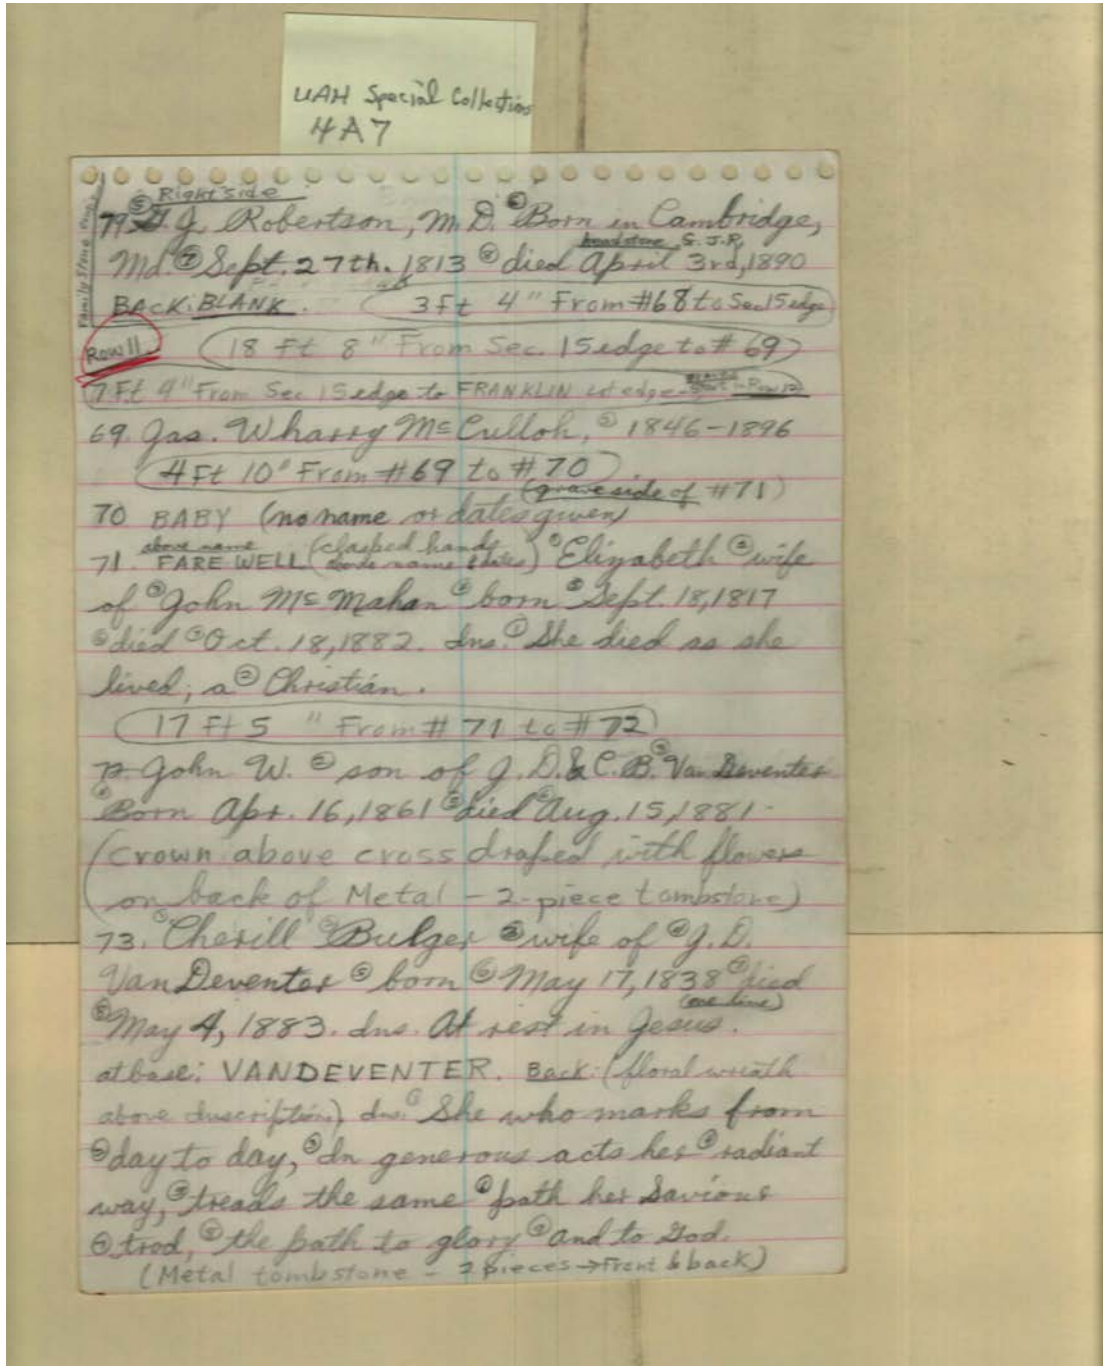 UAH Special Collections
4A7
⑤ Right side
J. Robertson, M.D. ⑥ Born in Cambridge,
headstone S.J.R.
Md. ⑦ Sept. 27th. 1813 ⑧ died April 3rd, 1890
BACK: BLANK. 3 Ft 4" From #68 to Sec 15 edge
Row 11 18 Ft 8" From Sec. 15 edge to #69
7 Ft 4" From Sec 15 edge to FRANKLIN Lot edge - Row 12
69. Jas. Wharry McCulloh, ② 1846-1896
4 Ft 10" From #69 to #70
(grave side of #71)
70 BABY (no name or dates given)
above name (clasped hands
71. FAREWELL above name & dates) ① Elizabeth ② wife
of ③ John McMahan ④ born ⑤ Sept. 18, 1817
⑥ died ⑦ Oct. 18, 1882. Ins. ① She died as she
lived; a ② Christian.
17 Ft 5 " From #71 to #72
72. John W. ② son of J. D. & C. B. ③ Van Deventer
④ Born Apr. 16, 1861 ⑤ died ⑥ Aug. 15, 1881.
(Crown above cross draped with flowers
on back of Metal - 2-piece tombstone)
73. ① Cherill ② Bulger ③ wife of ④ J. D.
Van Deventer ⑤ born ⑥ May 17, 1838 ⑦ died
(one line)
⑧ May 4, 1883. Ins. At rest in Jesus.
at base: VANDEVENTER. Back: (floral wreath
above inscription) Ins. ① She who marks from
② day to day, ③ In generous acts her ④ radiant
way, ⑤ treads the same ⑥ path her Saviour
⑦ trod, ⑧ the path to glory ⑨ and to God.
(Metal tombstone - 2 pieces → Front & back)